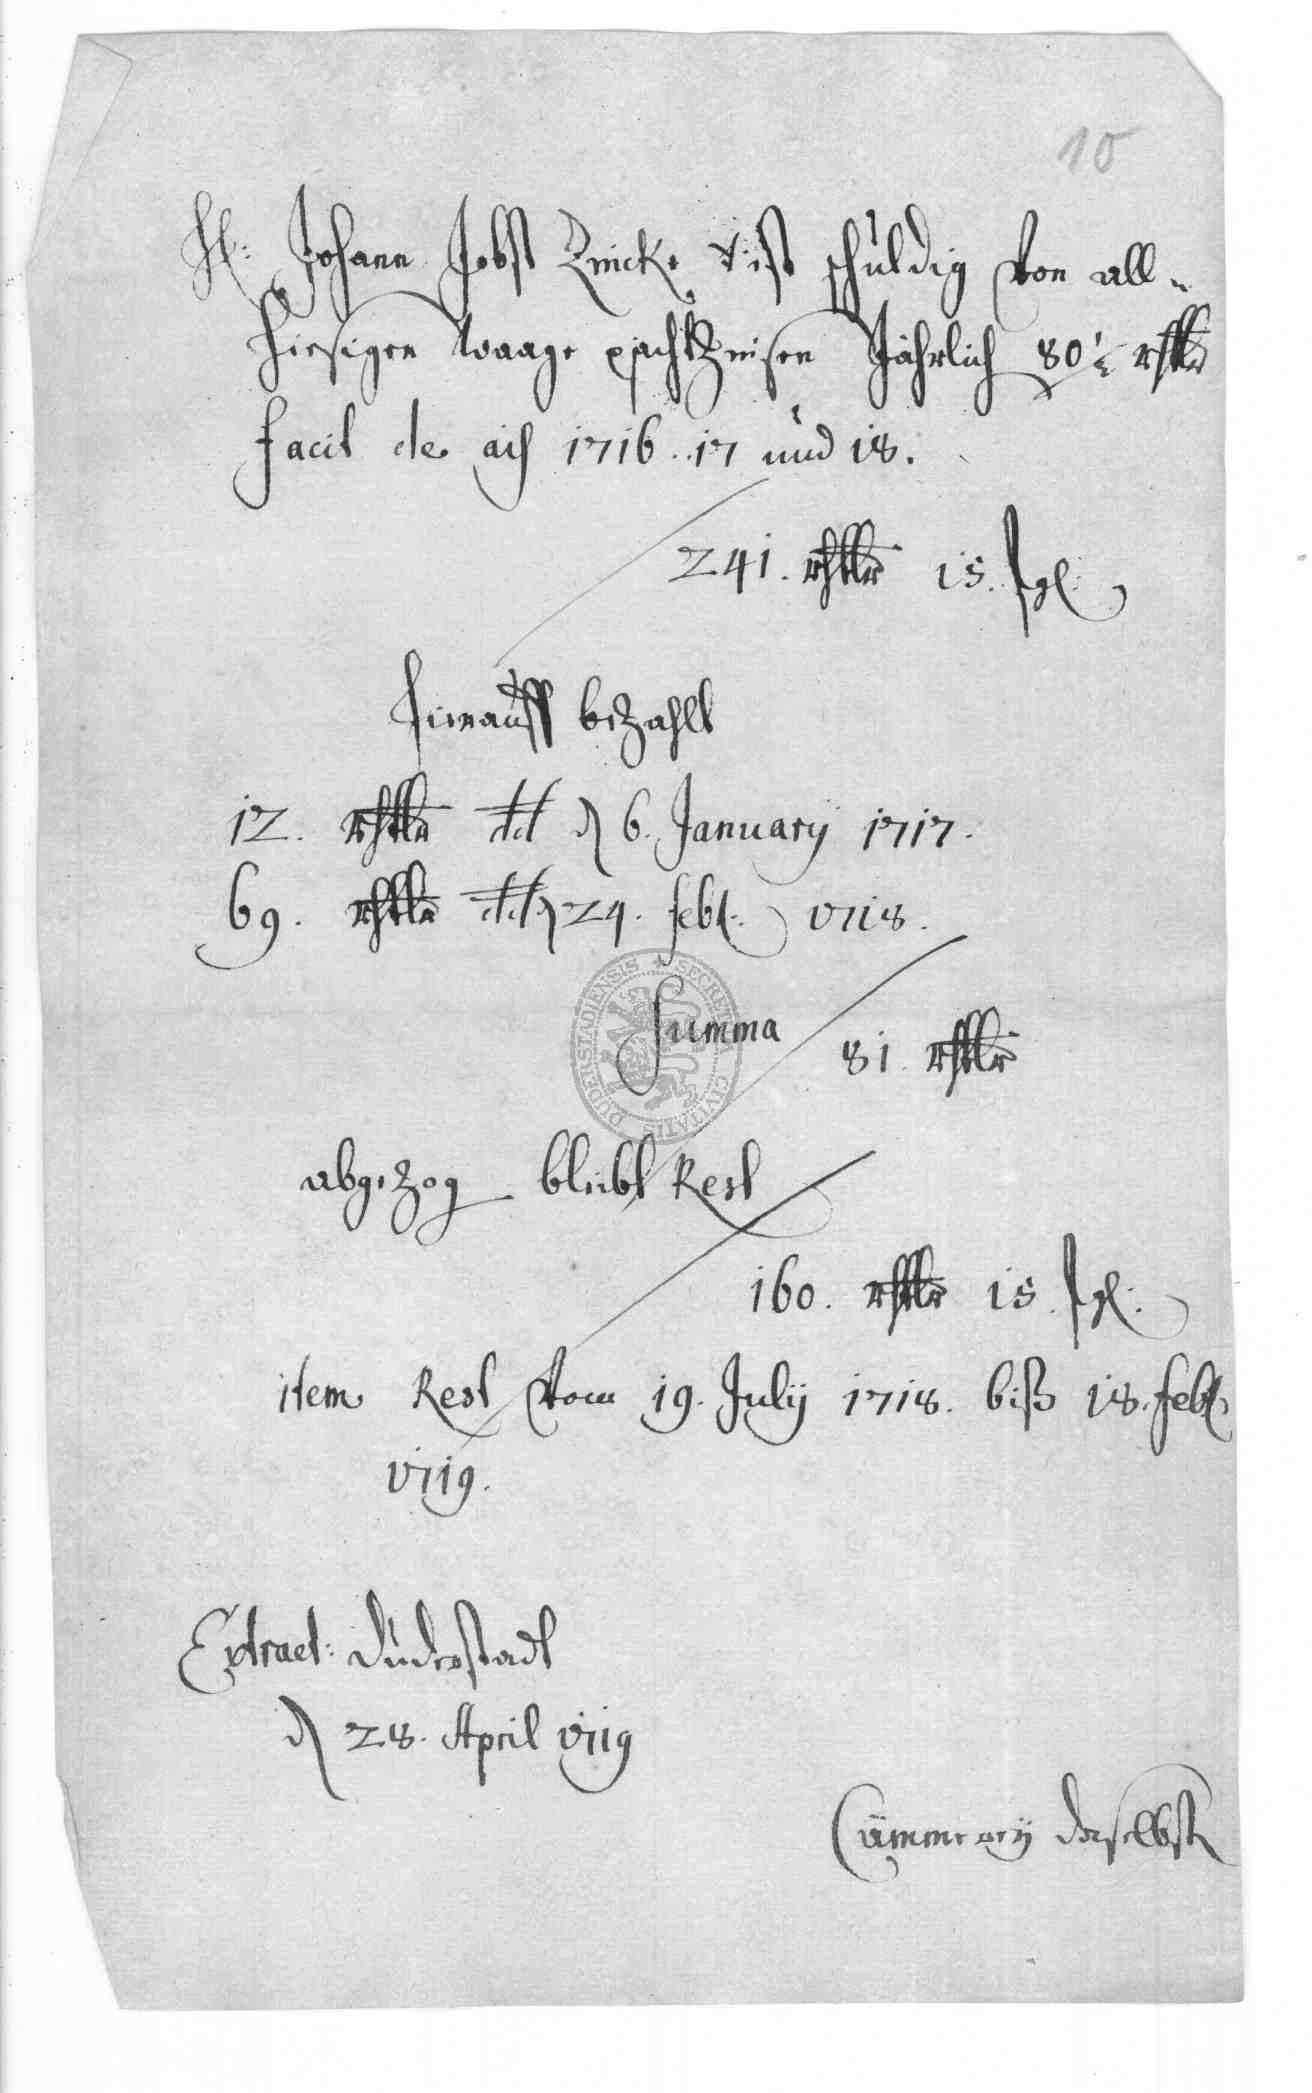 10
H: Johann Jobst Zwicke ist schuldig von all-
hiesigen Waage pachtZinsen Jährlich 80½ rthlr
facit de aõ 1716. 17 und 18.
241. rthlr 15. sgl:
hierauff beZahlt
12. rthlr dd d 6. January 1717.
69. rthlr dd d 24. febr. 1718.
Summa 81. rthlr
SECRETUM CIVITATIS DUDERSTADIENSIS
abgeZog bleibt Rest
160. rthlr 15. sgl:
item Rest vom 19. July 1718. biß 18. febr.
1719.
Extract: Duderstadt
d 28. April 1719
Cämmerey daselbst